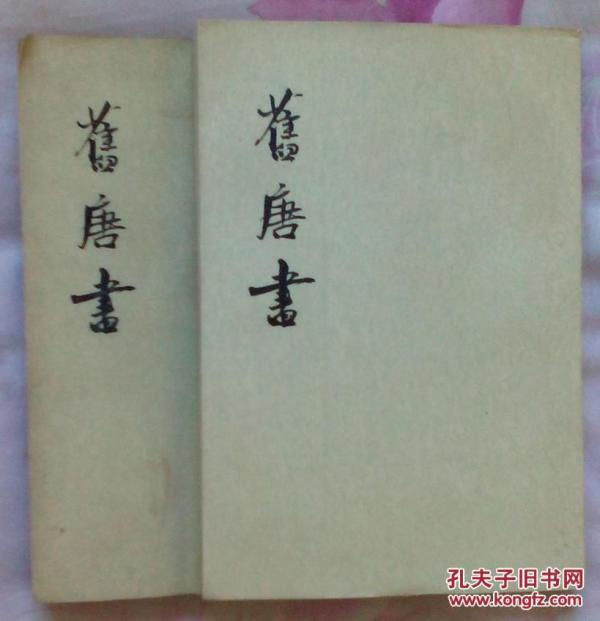 舊唐書
舊唐書
孔夫子旧书网
www.kongfz.com